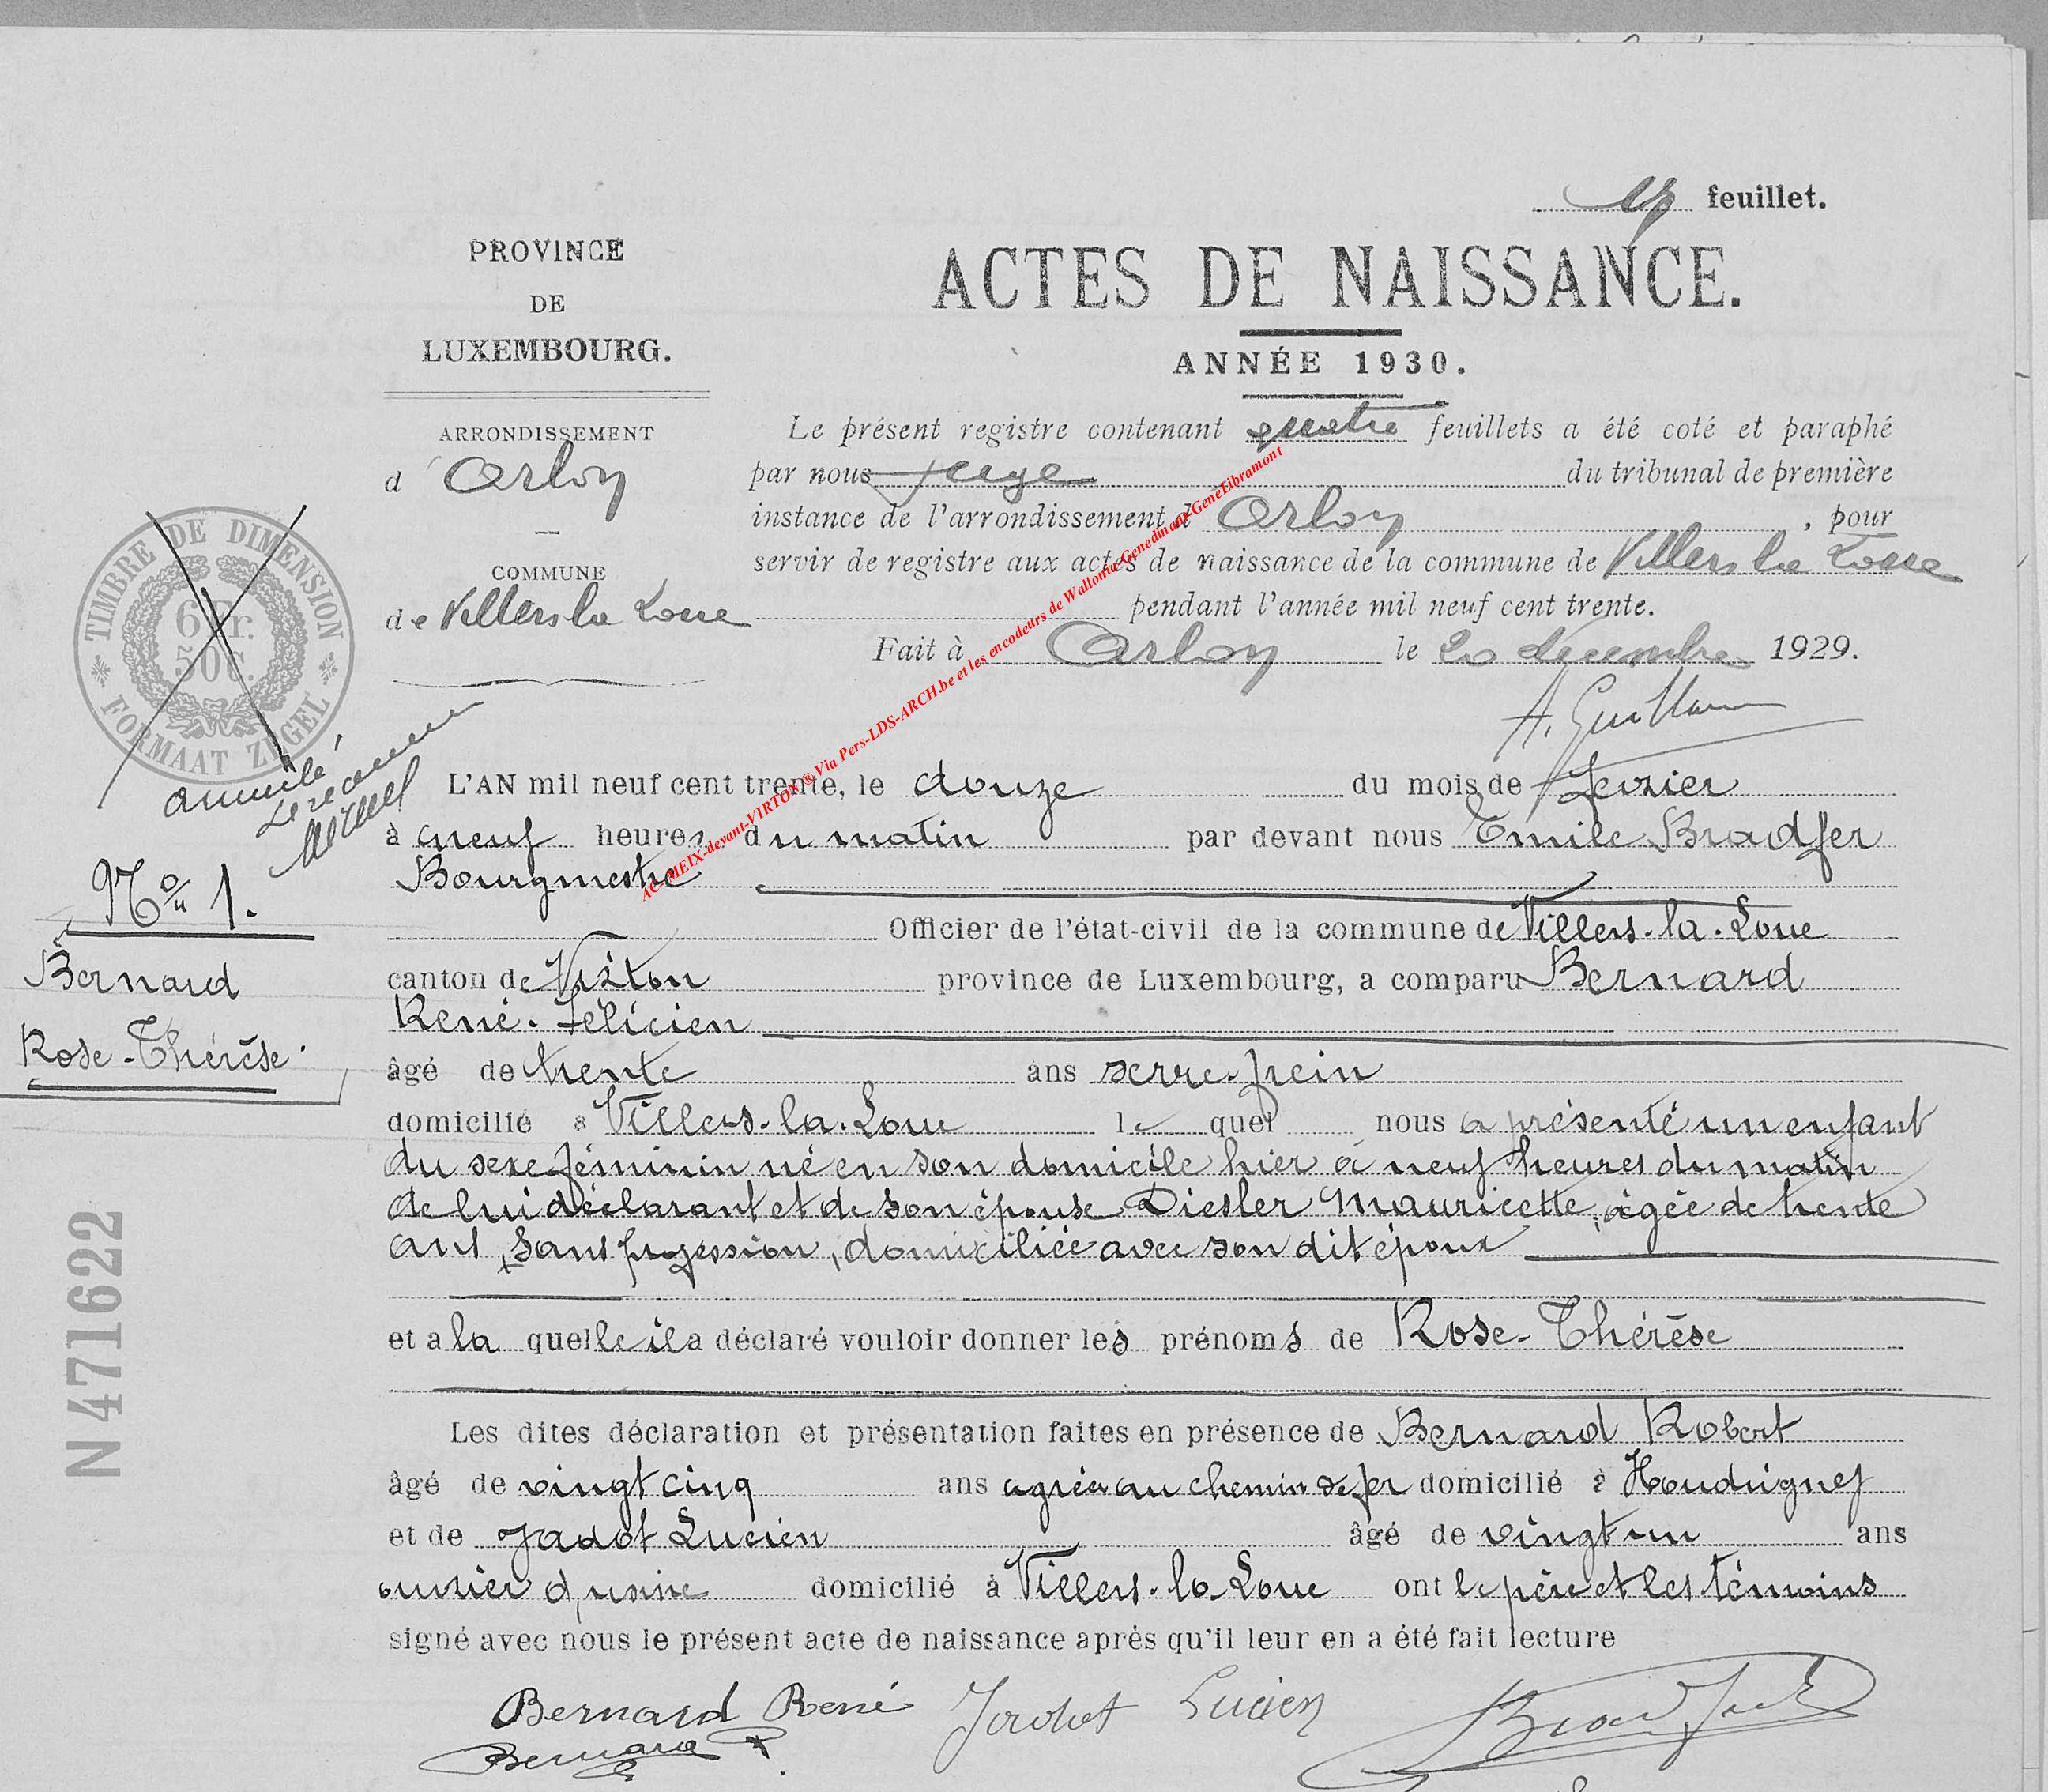 feuillet.
PROVINCE
DE
LUXEMBOURG.
ACTES DE NAISSANCE.
ANNÉE 1930.
ARRONDISSEMENT
d'Arlon
COMMUNE
de Villers la Loue
Le présent registre contenant quatre feuillets a été coté et paraphé
par nous juge du tribunal de première
instance de l'arrondissement d'Arlon, pour
servir de registre aux actes de naissance de la commune de Villers la Loue
pendant l'année mil neuf cent trente.
Fait à Arlon le 20 décembre 1929.
A. Guillaume
TIMBRE DE DIMENSION
6 Fr.
50 C.
FORMAAT ZEGEL
annulé
AC-MEIX-devant-VIRTON ® Via Pers-LDS-ARCH.be et les encodeurs de Wallonia-Genedinant-GeneLibramont
No 1.
Bernard
Rose-Thérèse.
N 471622
L'AN mil neuf cent trente, le douze du mois de fevrier
à neuf heures du matin par devant nous Emile Bradfer
Bourgmestre
Officier de l'état-civil de la commune de Villers-la-Loue
canton de Virton province de Luxembourg, a comparu Bernard
René-Félicien
âgé de trente ans serre-frein
domicilié à Villers-la-Loue le quel nous a présenté un enfant
du sexe féminin né en son domicile hier à neuf heures du matin
de lui déclarant et de son épouse Diesler Mauricette, âgée de trente
ans, sans profession, domiciliée avec son dit époux
et a la quelle il a déclaré vouloir donner les prénoms de Rose-Thérèse
Les dites déclaration et présentation faites en présence de Bernard Robert
âgé de vingt cinq ans agréé au chemin de fer domicilié à Houdrigny
et de Jadot Lucien âgé de vingt-un ans
ouvrier d'usine domicilié à Villers-la-Loue ont le père et les témoins
signé avec nous le présent acte de naissance après qu'il leur en a été fait lecture
Bernard René Jadot Lucien Bradfer
Bernard R